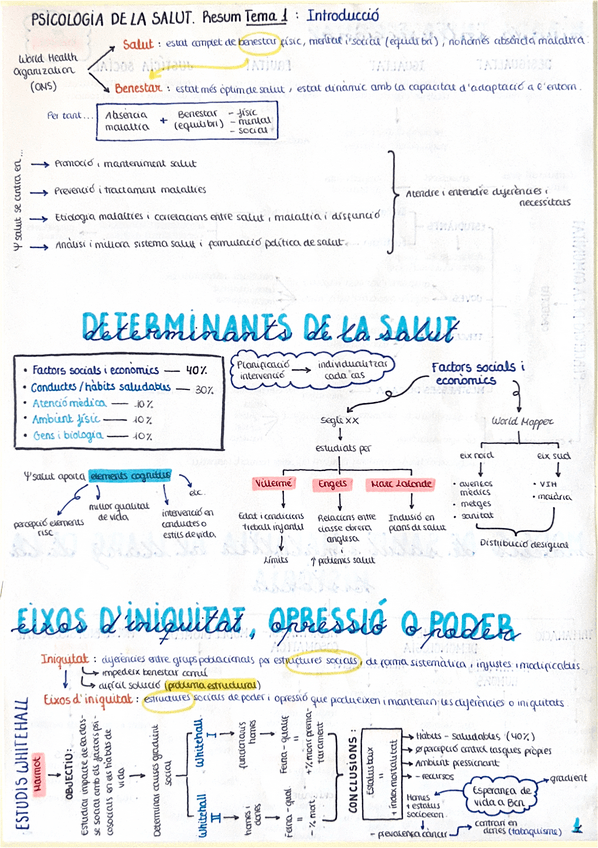 PSICOLOGIA DE LA SALUT. Resum Tema 1 : Introducció
World Health
Organization
(OMS)
Salut : estat complet de benestar físic, mental i social (equilibri), no només absència malaltia.
Benestar : estat més òptim de salut, estat dinàmic amb la capacitat d'adaptació a l'entorn.
Per tant...
Absència
malaltia
+
Benestar
(equilibri)
- físic
- mental
- social
Ψ salut se centra en...
Promoció i manteniment salut
Prevenció i tractament malalties
Etiologia malalties i correlacions entre salut, malaltia i disfunció
Anàlisi i millora sistema salut i formulació política de salut.
Atendre i entendre diferències i
necessitats
DETERMINANTS DE LA SALUT
determinants de la salut
• Factors socials i econòmics — 40%
• Conductes / hàbits saludables — 30%
• Atenció mèdica — 10%
• Ambient físic — 10%
• Gens i biologia — 10%
Planificació
intervenció
individualitzar
cada cas
Factors socials i
econòmics
Segle XX
estudiats per
Villermé
Engels
Marc Lalonde
Edat i condicions
treball infantil
Límits
Relacions entre
classe obrera
anglesa
i
↑ problemes salut
Inclusió en
plans de salut
World Mapper
eix nord
• avenços
mèdics
• metges
• sanitat
eix sud
• VIH
• malària
Distribució desigual
Ψ salut aporta elements cognitius
percepció elements
risc
millor qualitat
de vida
intervenció en
conductes o
estils de vida
etc.
EIXOS D'INIQUITAT, OPRESSIÓ O PODER
eixos d'iniquitat, opressió o poder
Iniquitat : diferències entre grups poblacionals per estructures socials, de forma sistemàtica i injustes i modificables.
impedeix benestar comú
difícil solució (problema estructural)
Eixos d'iniquitat : estructures socials de poder i opressió que produeixen i mantenen les diferències o iniquitats
ESTUDIS WHITEHALL
Marmot
OBJECTIU :
Estudiar impacte de la clas-
se social amb els factors psi-
cosocials en els hàbits de
vida
Determinar causes gradient
social
Whitehall I
funcionaris
homes
Feina - qualif
"
+ % morir prema-
turament
Whitehall II
homes i
dones
Feina - qual
"
- % mort.
CONCLUSIONS :
Estatus baix
"
+ índex mortalitat
hàbits - saludables (40%)
percepció control tasques pròpies
Ambient pressionant
- recursos
Esperança de
vida a Bcn
gradient
Homes
+ estatus
socioecon.
- prevalença càncer
contrari en
dones (tabaquisme)